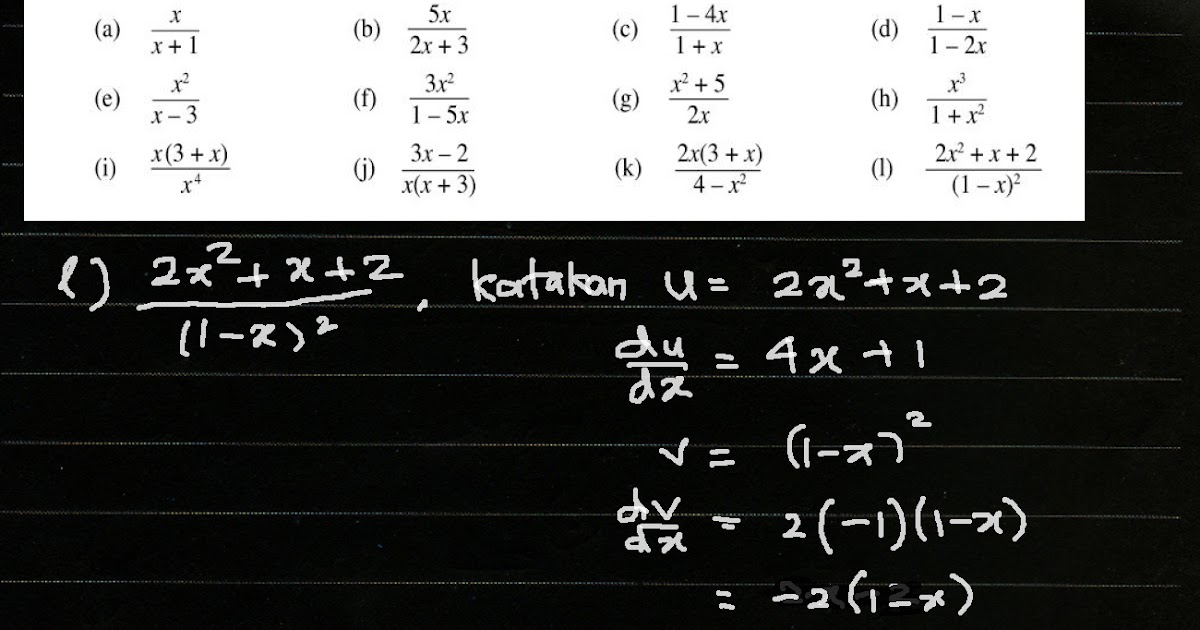 (a) x/(x + 1) (b) 5x/(2x + 3) (c) (1 – 4x)/(1 + x) (d) (1 – x)/(1 – 2x)
(e) x²/(x – 3) (f) 3x²/(1 – 5x) (g) (x² + 5)/(2x) (h) x³/(1 + x²)
(i) x(3 + x)/x⁴ (j) (3x – 2)/(x(x + 3)) (k) 2x(3 + x)/(4 – x²) (l) (2x² + x + 2)/(1 – x)²
l) (2x² + x + 2)/(1-x)², katakan u = 2x² + x + 2
du/dx = 4x + 1
v = (1-x)²
dv/dx = 2(-1)(1-x)
= -2(1-x)